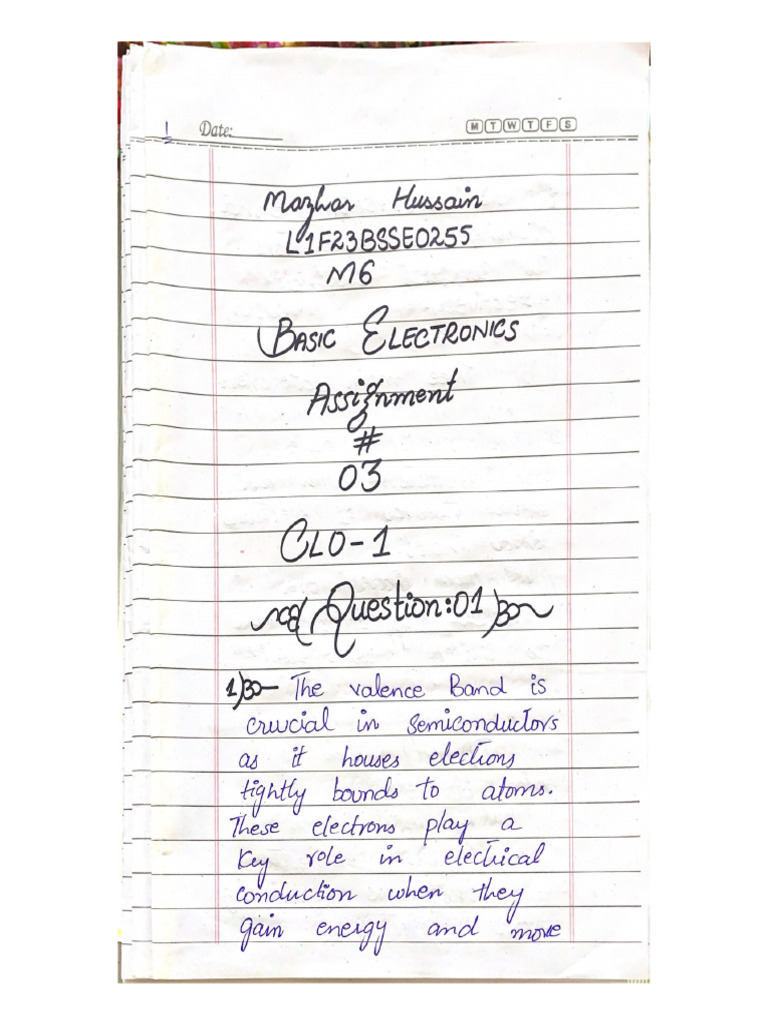 1 Date:
M T W T F S
Mazhar Hussain
L1F23BSSE0255
M6
BASIC ELECTRONICS
Assignment
#
03
CLO-1
Question:01
1) The valence Band is
crucial in semiconductors
as it houses electrons
tightly bounds to atoms.
These electrons play a
Key role in electrical
conduction when they
gain energy and move